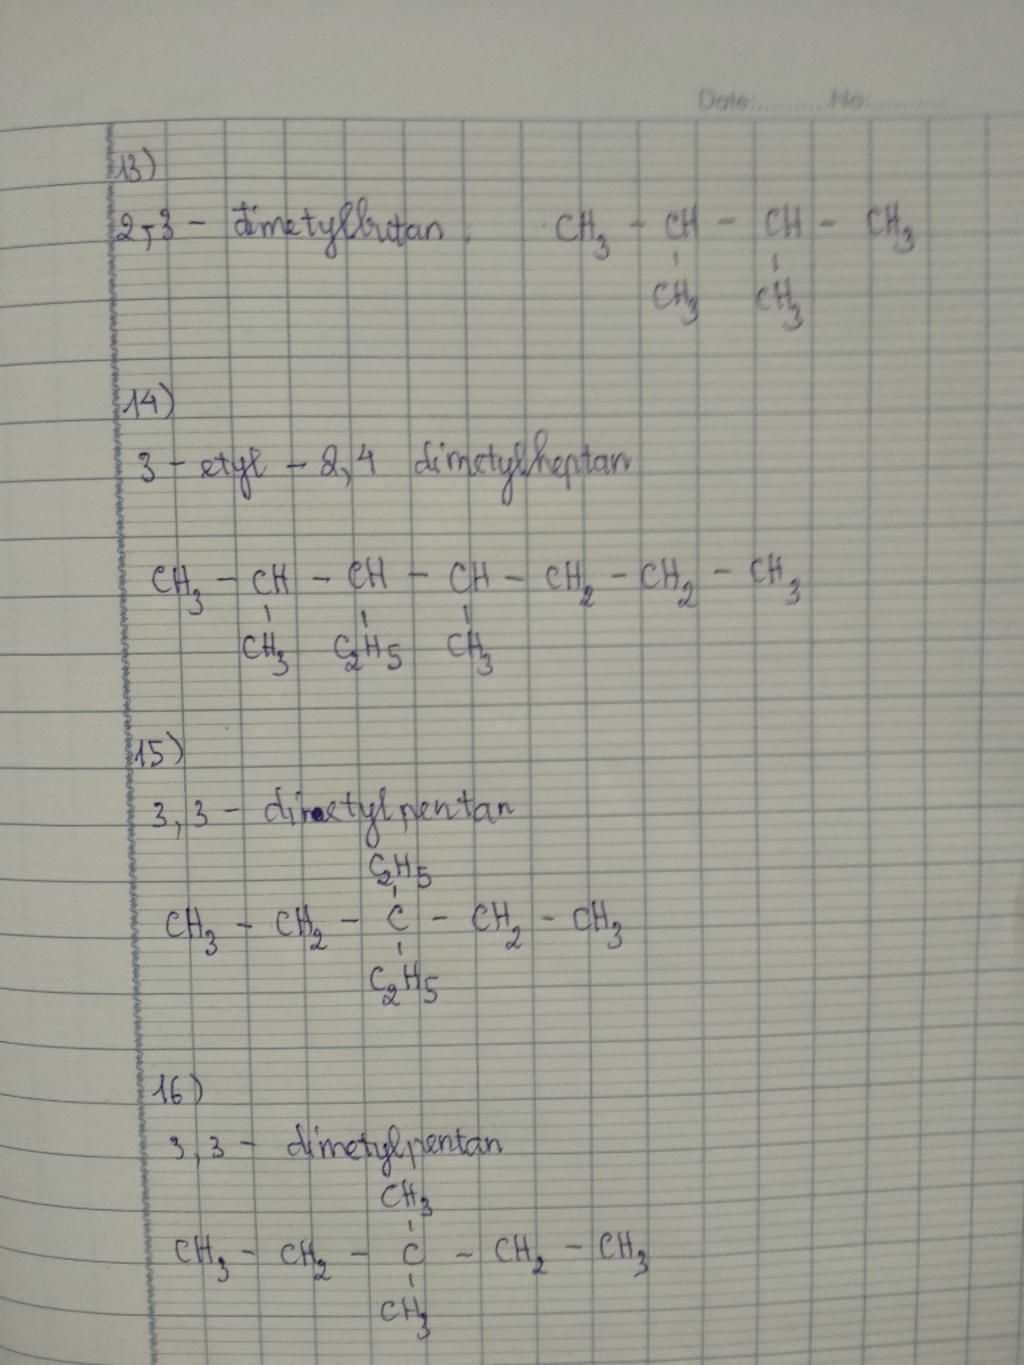 Date: No:
13)
2,3 - đimetylbutan. CH3 - CH - CH - CH3
CH3 CH3
14)
3 - etyl - 2,4 dimetylheptan
CH3 - CH - CH - CH - CH2 - CH2 - CH3
CH3 C2H5 CH3
15)
3,3 - dietylpentan
C2H5
CH3 - CH2 - C - CH2 - CH3
C2H5
16)
3,3 - dimetylpentan
CH3
CH3 - CH2 - C - CH2 - CH3
CH3